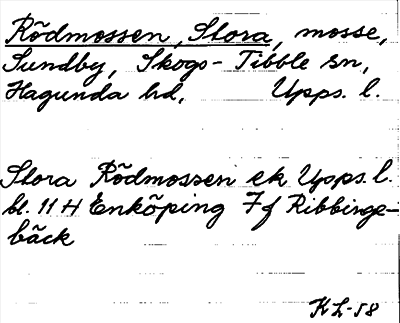 Rödmossen, Stora, mosse,
Sundby, Skogs-Tibble sn,
Hagunda hd, Upps. l.
Stora Rödmossen ek Upps. l.
bl. 11 H Enköping 7f Ribbinge-
bäck
KL-58